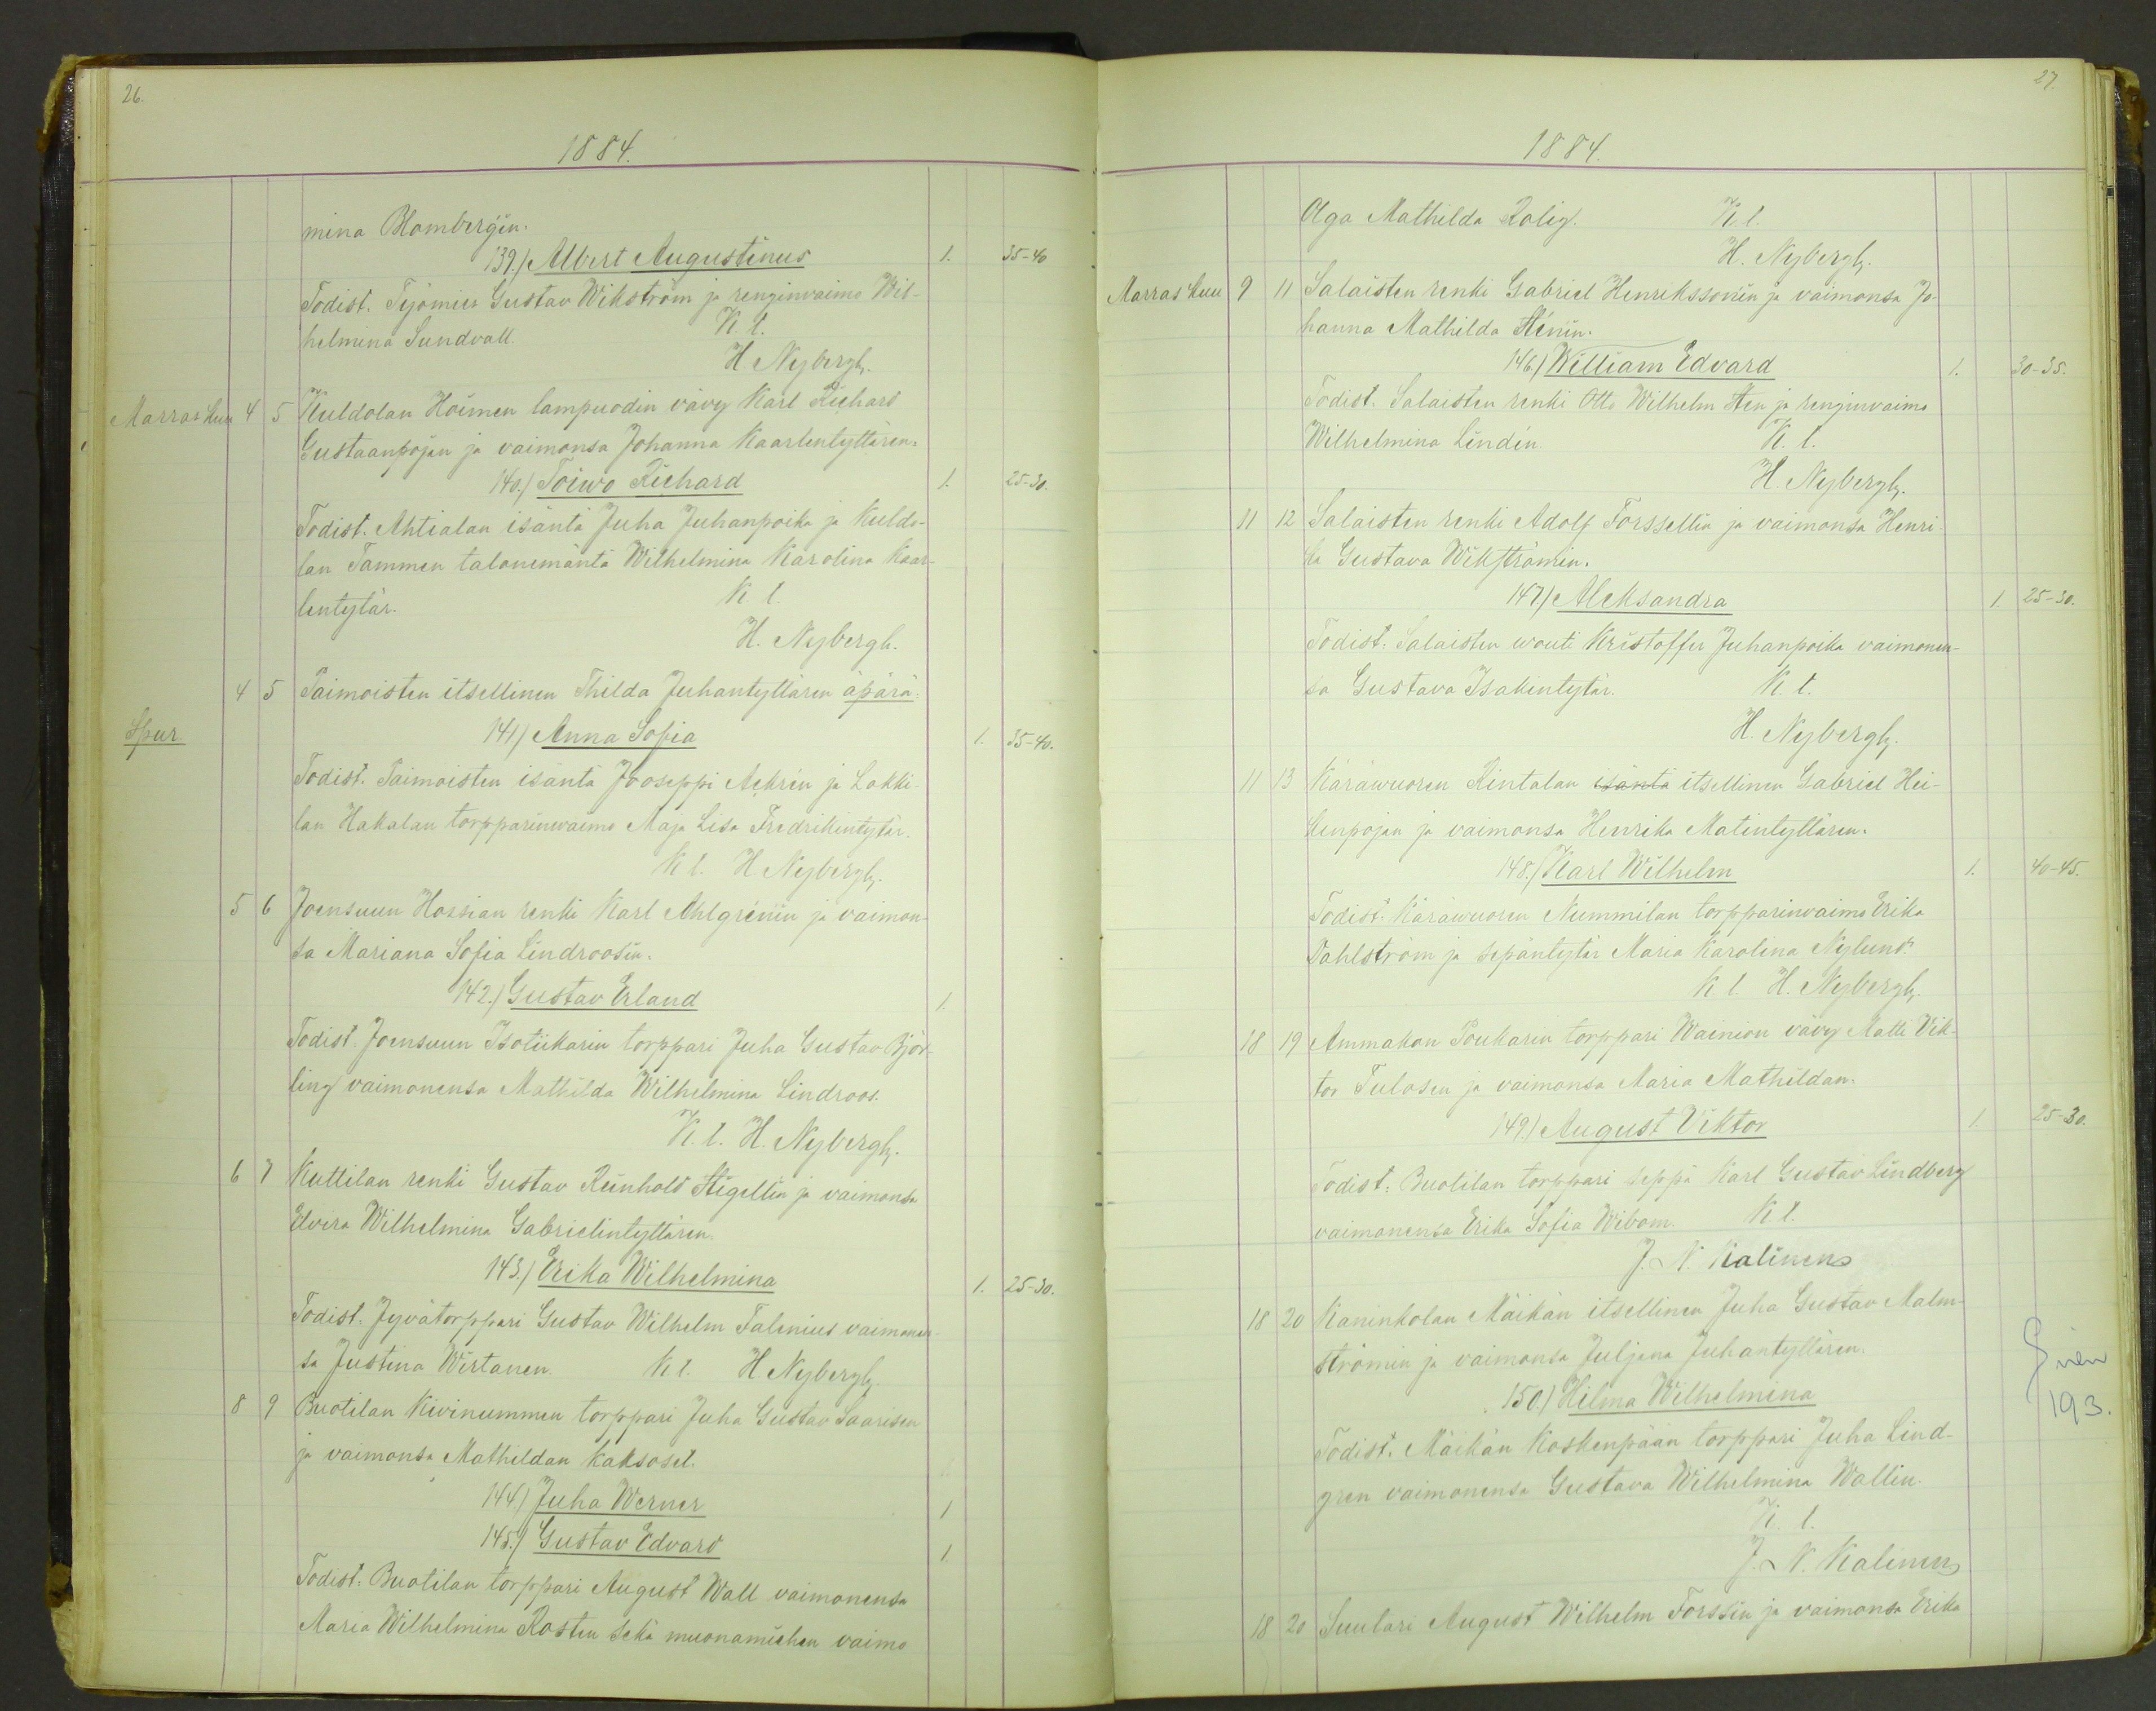 26.
1884.
mina Blombergin.
139.) Albert Augustinus 1. 35-40
Todist. Työmies Gustav Wikström ja renginvaimo Wil-
helmina Sundvall. K. l.
H Nybergh.
Marras kuu 4 5 Kuldolan Hoimen lampuodin vävy Karl Richard
Gustaanpojan ja vaimonsa Johanna Kaarlentyttären.
140.) Toiwo Richard 1. 25-30.
Todist. Ahtialan isäntä Juha Juhanpoika ja Kuldo-
lan Tammen talonemäntä Wilhelmina Karolina Kaar-
lentytär. K. l.
H. Nybergh.
4 5 Paimoisten itsellinen Thilda Juhantyttären äpärä:
Spur. 141.) Anna Sofia 1. 35-40.
Todist. Paimoisten isäntä Jooseppi Ackrén ja Lokki-
lan Hakalan torpparinwaimo Maja Lisa Fredrikintytär.
K l. H Nybergh.
5 6 Joensuun Hossian renki Karl Ahlgrénin ja vaimon-
sa Mariana Sofia Lindroosin.
142.) Gustav Erland 1.
Todist. Joensuun Isotiikarin torppari Juha Gustav Björ-
ling vaimonensa Mathilda Wilhelmina Lindroos.
K. l. H. Nybergh.
6 7 Kuttilan renki Gustav Reinhold Stigellin ja vaimonsa
Elvira Wilhelmina Gabrielintyttären.
143.) Erika Wilhelmina 1. 25-30.
Todist. Jyvätorppari Gustav Wilhelm Falenius vaimonen-
sa Justina Wirtanen. K l. H Nybergh.
8 9 Buotilan Kivinummen torppari Juha Gustav Saarisen
ja vaimonsa Mathildan kaksoset.
144.) Juha Werner 1
145.) Gustav Edvard 1
Todist: Buotilan torppari August Wall vaimonensa
Maria Wilhelmina Rosten sekä muonamiehen vaimo
27.
1884.
Olga Mathilda Rolig. K. l.
H. Nybergh.
Marras kuu 9 11 Salaisten renki Gabriel Henrikssonin ja vaimonsa Jo-
hanna Mathilda Sténin.
146.) William Edvard 1. 30-35.
Todist. Salaisten renki Otto Wilhelm Sten ja renginvaimo
Wilhelmina Lindén. K. l.
H. Nybergh.
11 12 Salaisten renki Adolf Forssellin ja vaimonsa Henri-
ka Gustava Wikströmin.
147.) Aleksandra 1. 25-30.
Todist: Salaisten wouti Kristoffer Juhanpoika vaimonen-
sa Gustava Isakintytär. K. l.
H. Nybergh.
11 13 Käräwuoren Rintalan isäntä itsellinen Gabriel Hei-
kinpojan ja vaimonsa Henrika Matintyttären.
148.) Karl Wilhelm 1. 40-45.
Todist: Käräwuoren Nummilan torpparinvaimo Erika
Dahlström ja sepäntytär Maria Karolina Nylund.
K l. H. Nybergh.
18 19 Ammakon Poukarin torppari Wainion vävy Matti Vik-
tor Tulosen ja vaimonsa Maria Mathildan.
149.) August Viktor 1. 25-30.
Todist: Buotilan torppari seppä Karl Gustav Lindberg
vaimonensa Erika Sofia Wibom. K l.
J. N. Kalinens
18 20 Kaninkolan Mäikän itsellinen Juha Gustav Malm-
strömin ja vaimonsa Juljana Juhantyttären.
150.) Hilma Wilhelmina
193.
Todist. Mäikän Koskenpään torppari Juha Lind-
gren vaimonensa Gustava Wilhelmina Wallin.
K. l.
J. N. Kalinens
18 20 Suutari August Wilhelm Forssin ja vaimonsa Erika